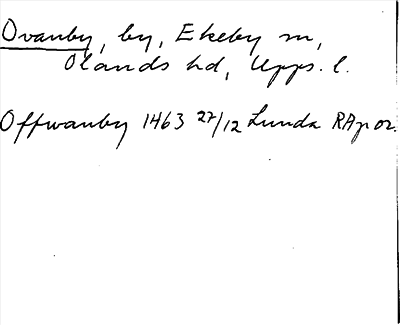 Ovanby, by, Ekeby sn,
Olands hd, Upps. l.
Offwanby 1463 27/12 Lunda RAp or.